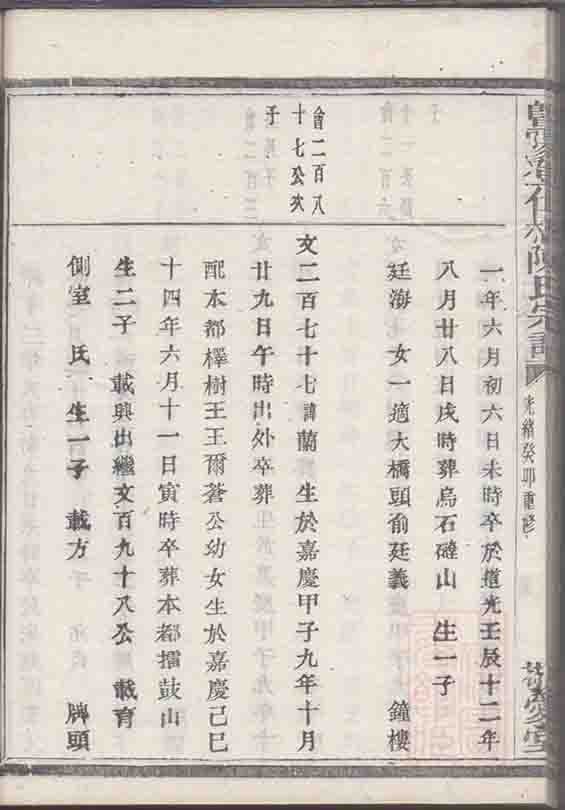 一年六月初六日未時卒於道光壬辰十二年
八月廿八日戌時葬烏石磓山 生一子
廷海 女一適大橋頭俞廷義 鐘樓
會二百八
十七公次
子
文二百七十七諱蘭 生於嘉慶甲子九年十月
廿九日午時出外卒葬
配本都檡樹王王爾蒼公幼女生於嘉慶己巳
十四年六月十一日寅時卒葬本都擂鼓山
生二子 載興出繼文百九十八公 載育
側室 氏 生一子 載方 牌頭
陳氏宗譜
光緒癸卯重修
愛堂